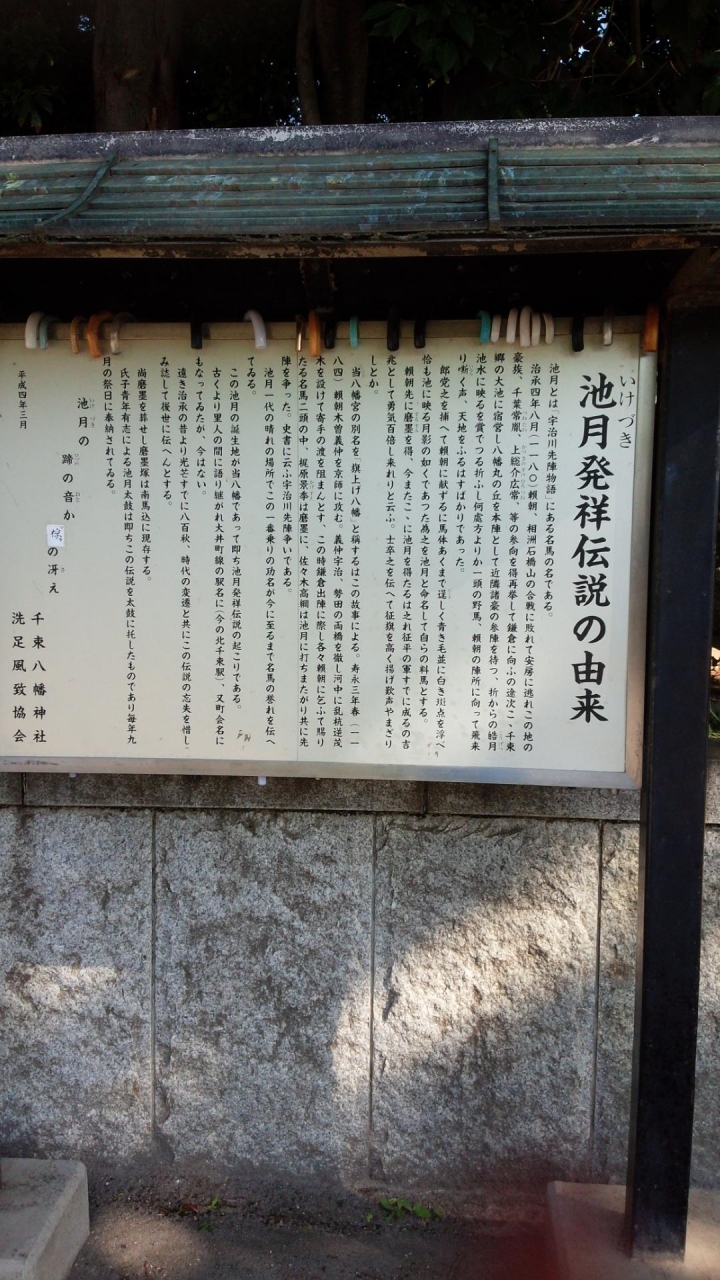 いけづき
池月発祥伝説の由来
池月とは「宇治川先陣物語」にある名馬の名である。
治承四年八月(一一八〇)頼朝、相洲石橋山の合戦に敗れて安房に逃れこの地の
豪族、千葉常胤、上総介広常、等の参向を得再挙して鎌倉に向ふの途次こゝ千束
郷の大池に宿営し八幡丸の丘を本陣として近隣諸豪の参陣を待つ、折からの皓月
池水に映るを賞でつる折ふし何処方よりか一頭の野馬、頼朝の陣所に向って飛来
り嘶く声、天地をふるはすばかりであった。
郎党之を捕へて頼朝に献ずるに馬体あくまで逞しく青き毛並に白き斑点を浮べ
恰も池に映る月影の如くであつた為之を池月と命名して自らの料馬とする。
頼朝先に磨墨を得、今またこゝに池月を得たるは之れ征平の軍すでに成るの吉
兆として勇気百倍し来れりと云ふ。士卒之を伝へて征旗を高く揚げ歓声やまざり
しとか。
当八幡宮の別名を「旗上げ八幡」と称するはこの故事による。寿永三年春(一一
八四)頼朝木曽義仲を京師に攻む。義仲宇治、勢田の両橋を撤し河中に乱杭逆茂
木を設けて寄手の渡を阻まんとす、この時鎌倉出陣に際し各々頼朝に乞ふて賜り
たる名馬二頭の中、梶原景季は磨墨に、佐々木高綱は池月に打ちまたがり共に先
陣を争った。史書に云ふ宇治川先陣争いである。
池月一代の晴れの場所でこの一番乗りの功名が今に至るまで名馬の誉れを伝へ
てゐる。
この池月の誕生地が当八幡であって即ち池月発祥伝説の起こりである。
古くより里人の間に語り継がれ大井町線の駅名に(今の北千束駅)、又町会名に
もなってゐたが、今はない。
遠き治承の昔より光芒すでに八百秋、時代の変遷と共にこの伝説の忘失を惜し
み誌して後世に伝へんとする。
尚磨墨を葬せし磨墨塚は南馬込に現存する。
氏子青年有志による池月太鼓は即ちこの伝説を太鼓に托したものであり毎年九
月の祭日に奉納されてゐる。
池月の
蹄の音か
の冴え
千束八幡神社
洗足風致協会
平成四年三月